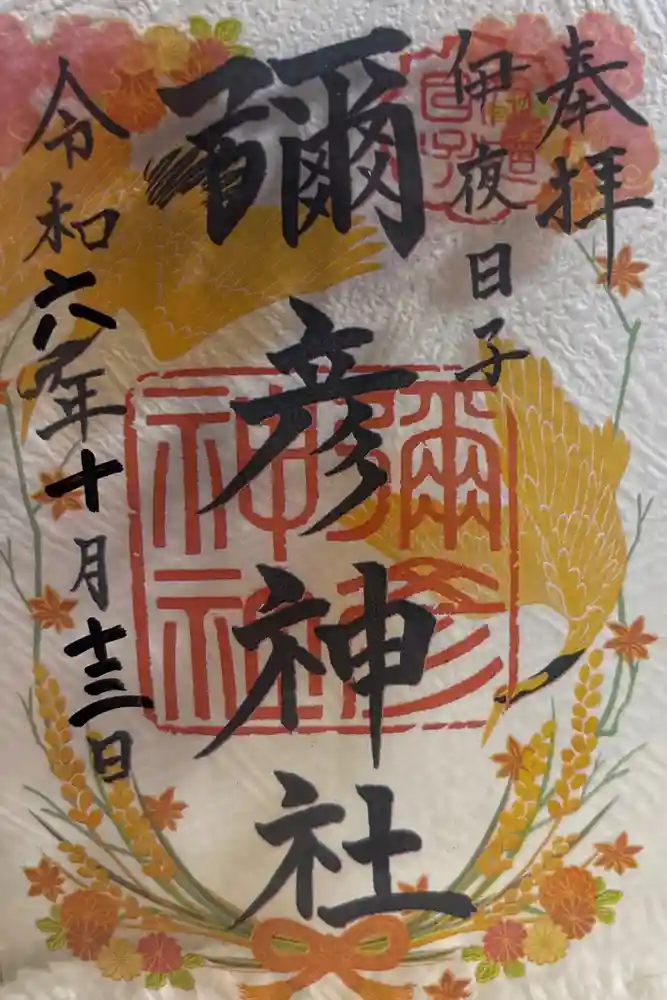 奉拝
伊夜日子
彌彦神社
彌彦神社
令和六年十月十三日